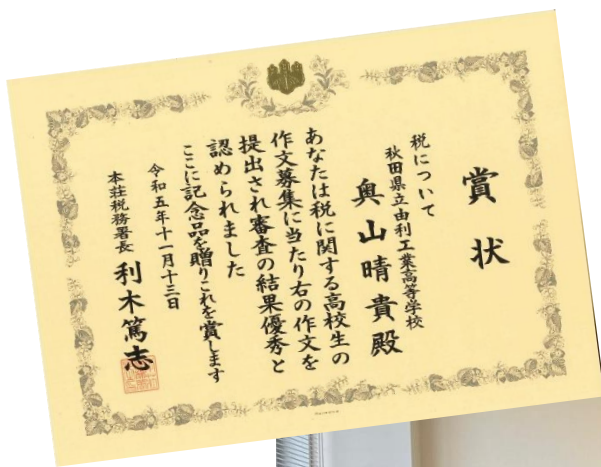 賞状
税について
秋田県立由利工業高等学校
奥山晴貴殿
あなたは税に関する高校生の
作文募集に当たり右の作文を
提出され審査の結果優秀と
認められました
ここに記念品を贈りこれを賞します
令和五年十一月十三日
本荘税務署長 利木篤志